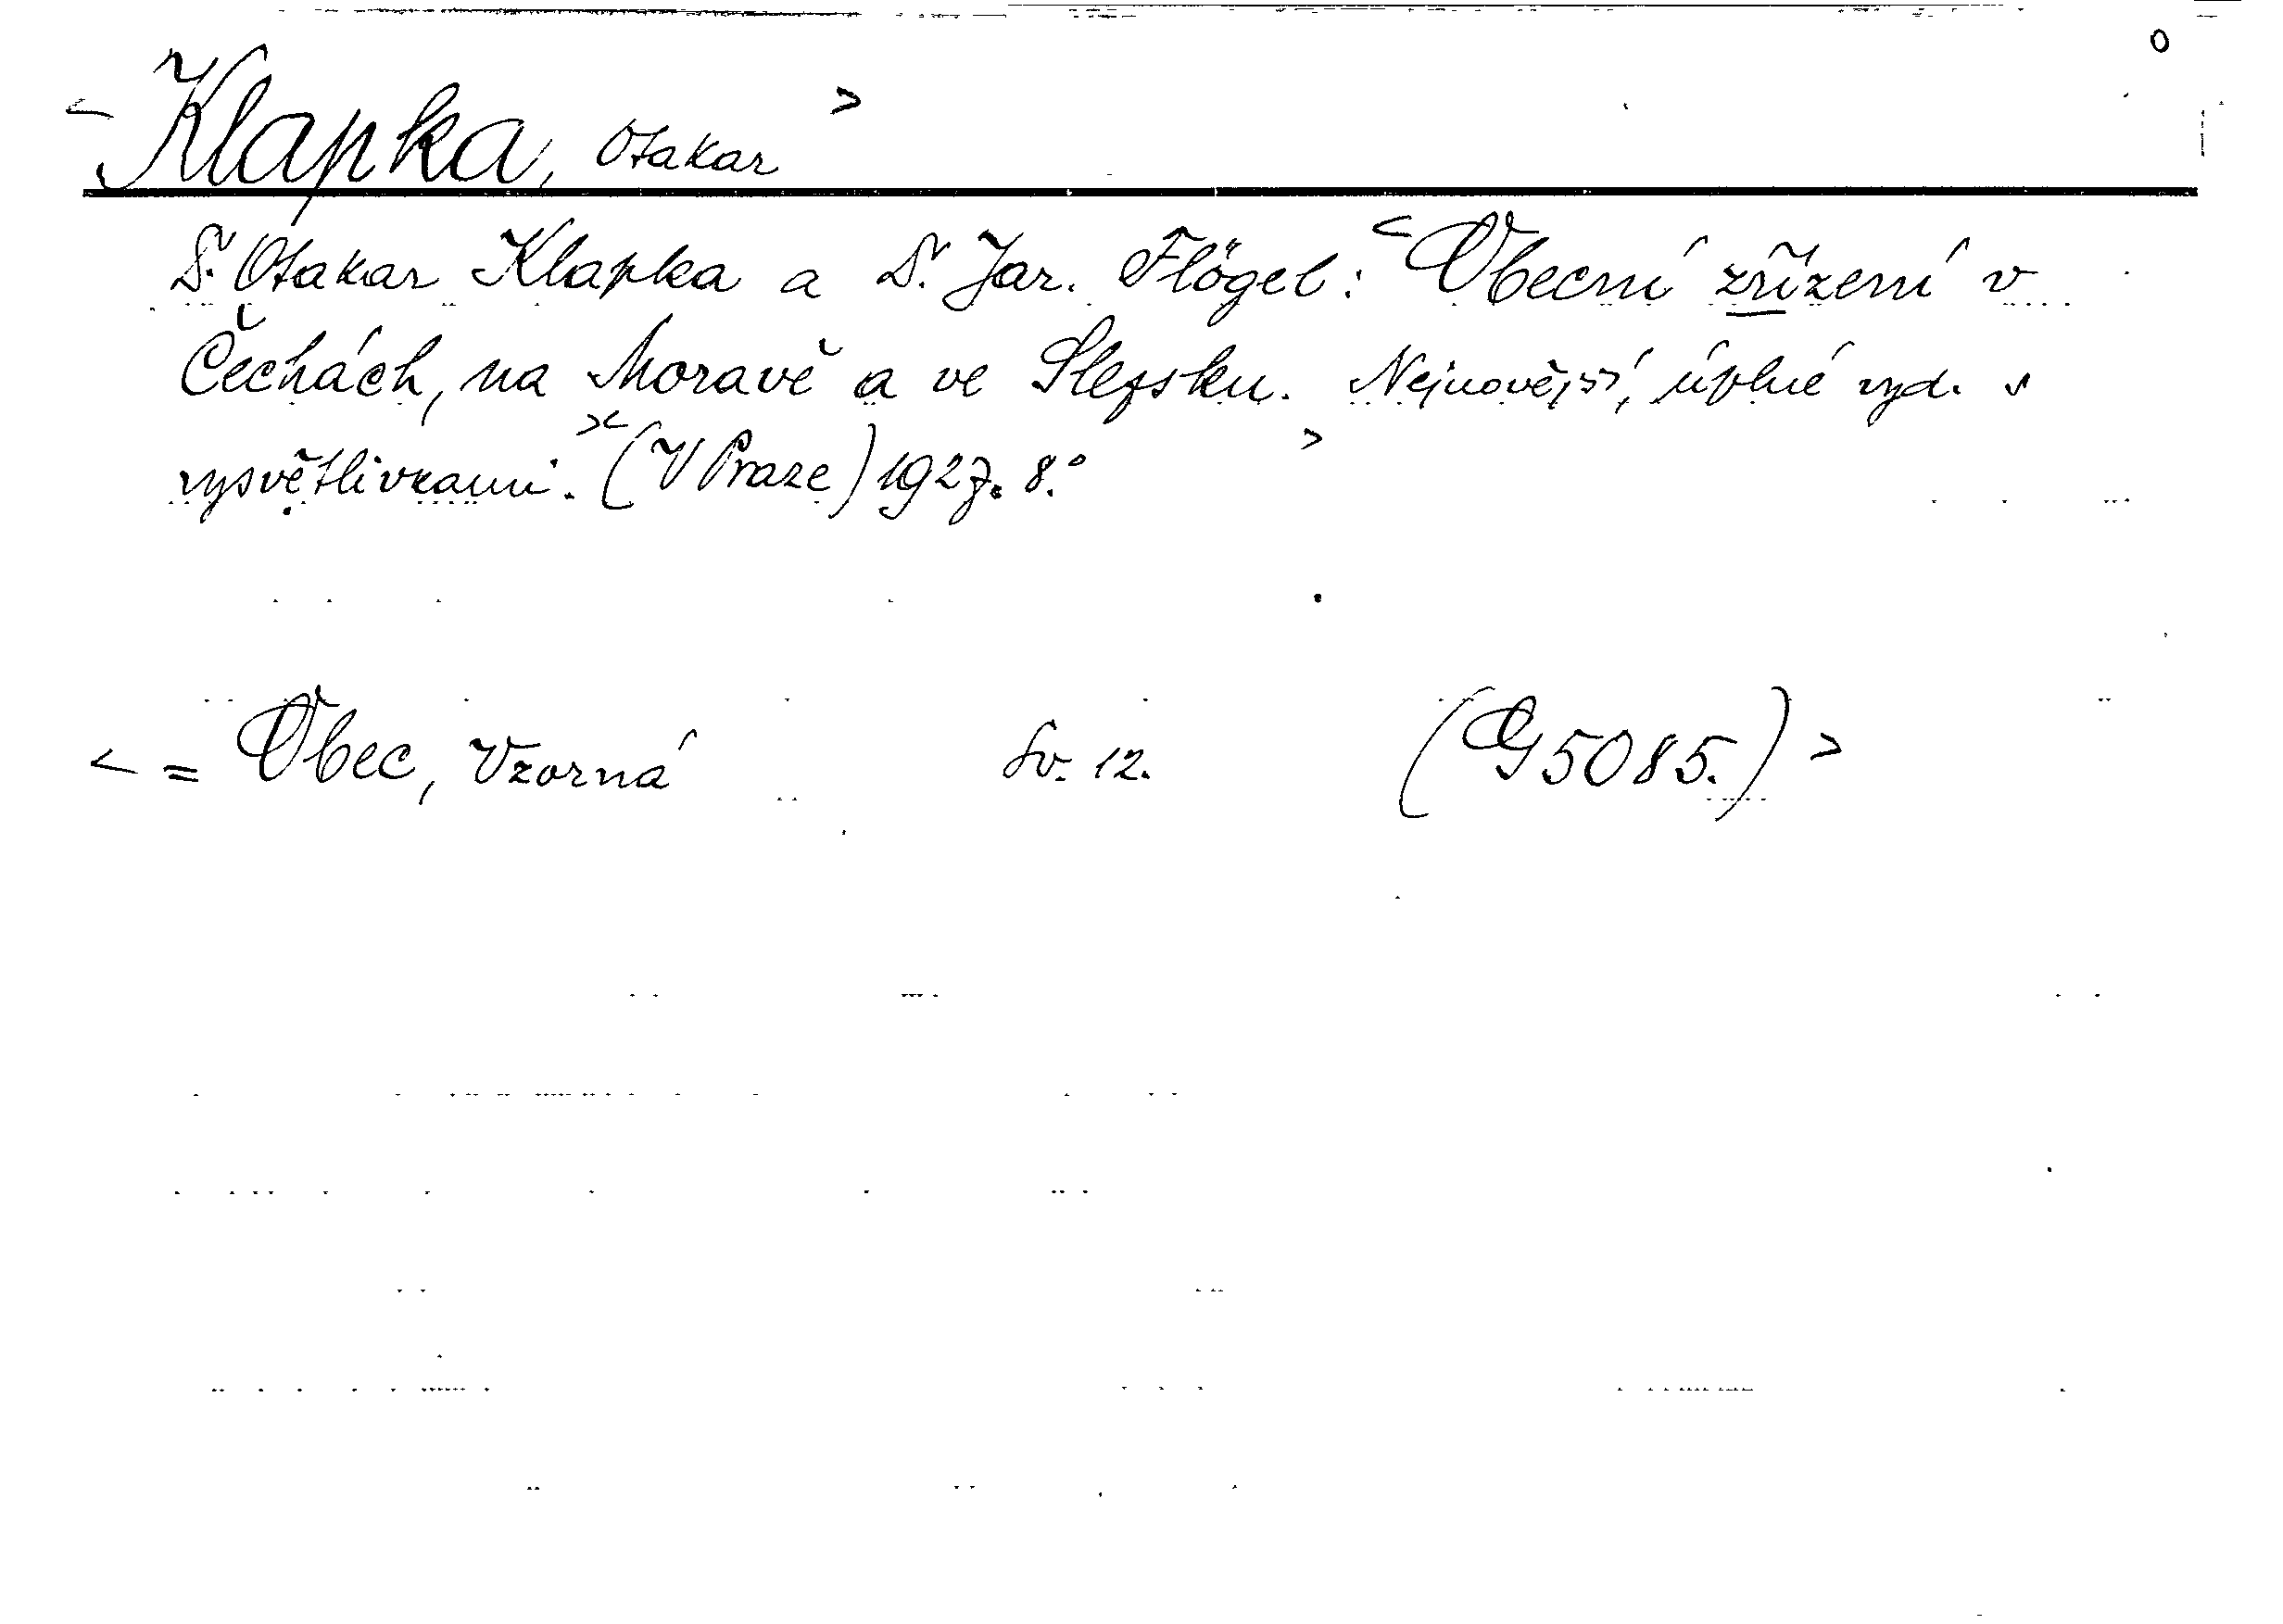 o
< Klapka, Otakar >
Dr. Otakar Klapka a Dr. Jar. Flögel: < Obecní zřízení v
Čechách, na Moravě a ve Slezsku. Nejnovější, úplné vyd. s
vysvětlivkami. >< (V Praze) 1927. 8.° >
< = Obec, Vzorná Sv. 12. (G 5085.) >